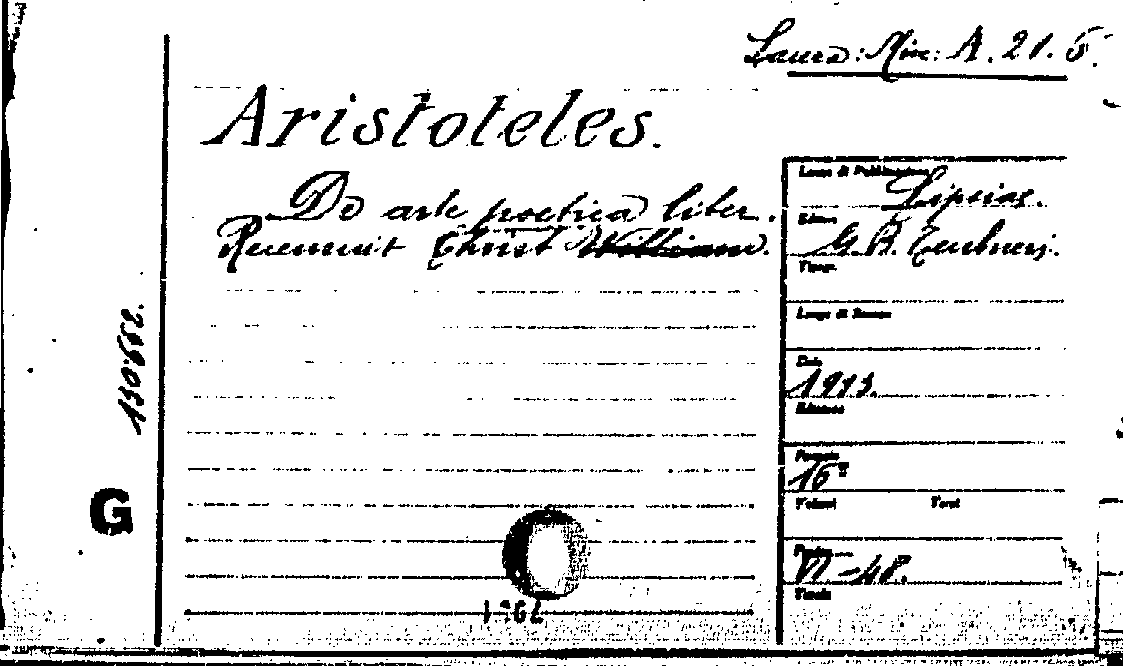 Laura: Min: A. 21. 5.
Aristoteles.
De arte poetica liber.
Recensuit Christ William.
Luogo di Pubblicazione
Lipsiae.
Editore
G. B. Teubneri.
Tipogr.
Luogo di Stampa
Data
1913.
Edizione
Formato
16º
Volumi Tomi
Pagine
VI-48.
Tavole
130662.
G